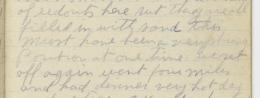 of redouts here but they are all
filled in with sand this
must have been a very strong
position at one time. went
off again went four miles
and had dinner very hot day